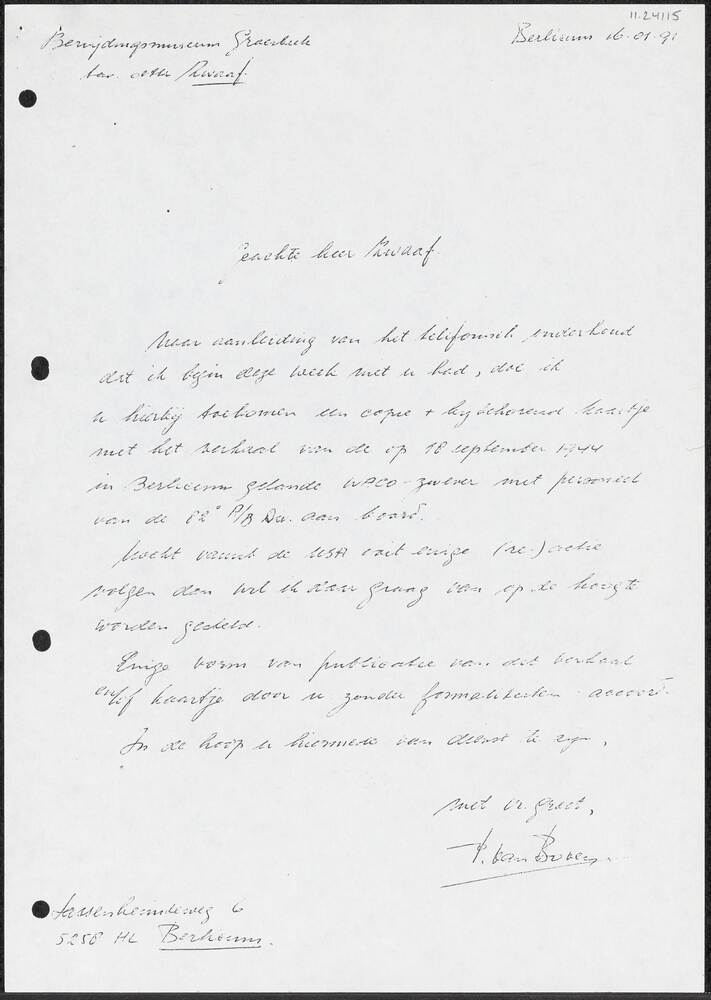 11.24115
Bevrijdingsmuseum Groesbeek
Berlicum 16-01-91
tav. dhr Kwaaf.
Geachte heer Kwaaf.
Naar aanleiding van het telefonisch onderhoud
dat ik begin deze week met u had, doe ik
u hierbij toekomen een copie + bijbehorend kaartje
met het verhaal van de op 18 september 1944
in Berlicum gelande WACO-zwever met personeel
van de 82e P/B Div. aan boord.
Mocht vanuit de USA ooit enige (re-)actie
volgen dan wil ik daar graag van op de hoogte
worden gesteld.
Enige vorm van publicatie van dit verhaal
en/of kaartje door u zonder formaliteiten accoord.
In de hoop u hiermede van dienst te zijn,
met vr. groet,
P. van Boven.
6
5258 HL Berlicum.